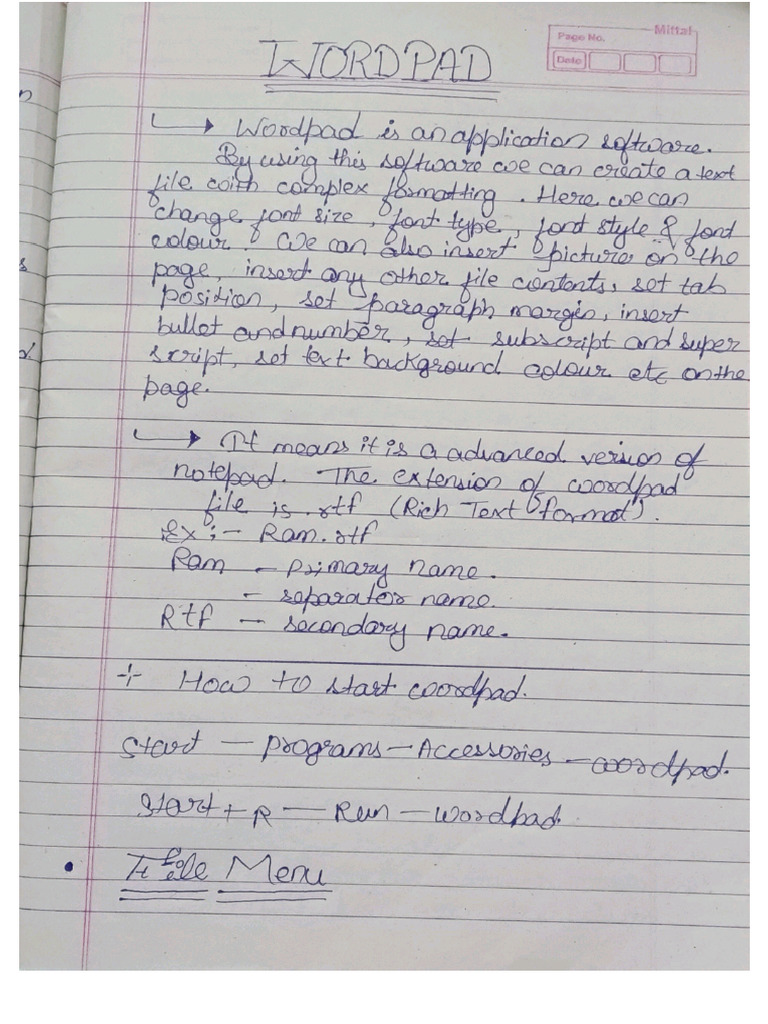 Mittal
Page No.
Date
WORDPAD
Wordpad is an application software.
By using this software we can create a text
file with complex formatting. Here we can
change font size, font type, font style & font
colour. We can also insert picture on the
page, insert any other file contents, set tab
position, set paragraph margin, insert
bullet and number, set subscript and super
script, set text background colour etc on the
page.
It means it is a advanced version of
notepad. The extension of woordpad
file is .rtf (Rich Text format).
Ex :- Ram.rtf
Ram - primary name.
- separator name.
Rtf - secondary name.
How to start woordpad.
Start - programs - Accessories - woordpad.
Start + R - Run - wordpad
File Menu